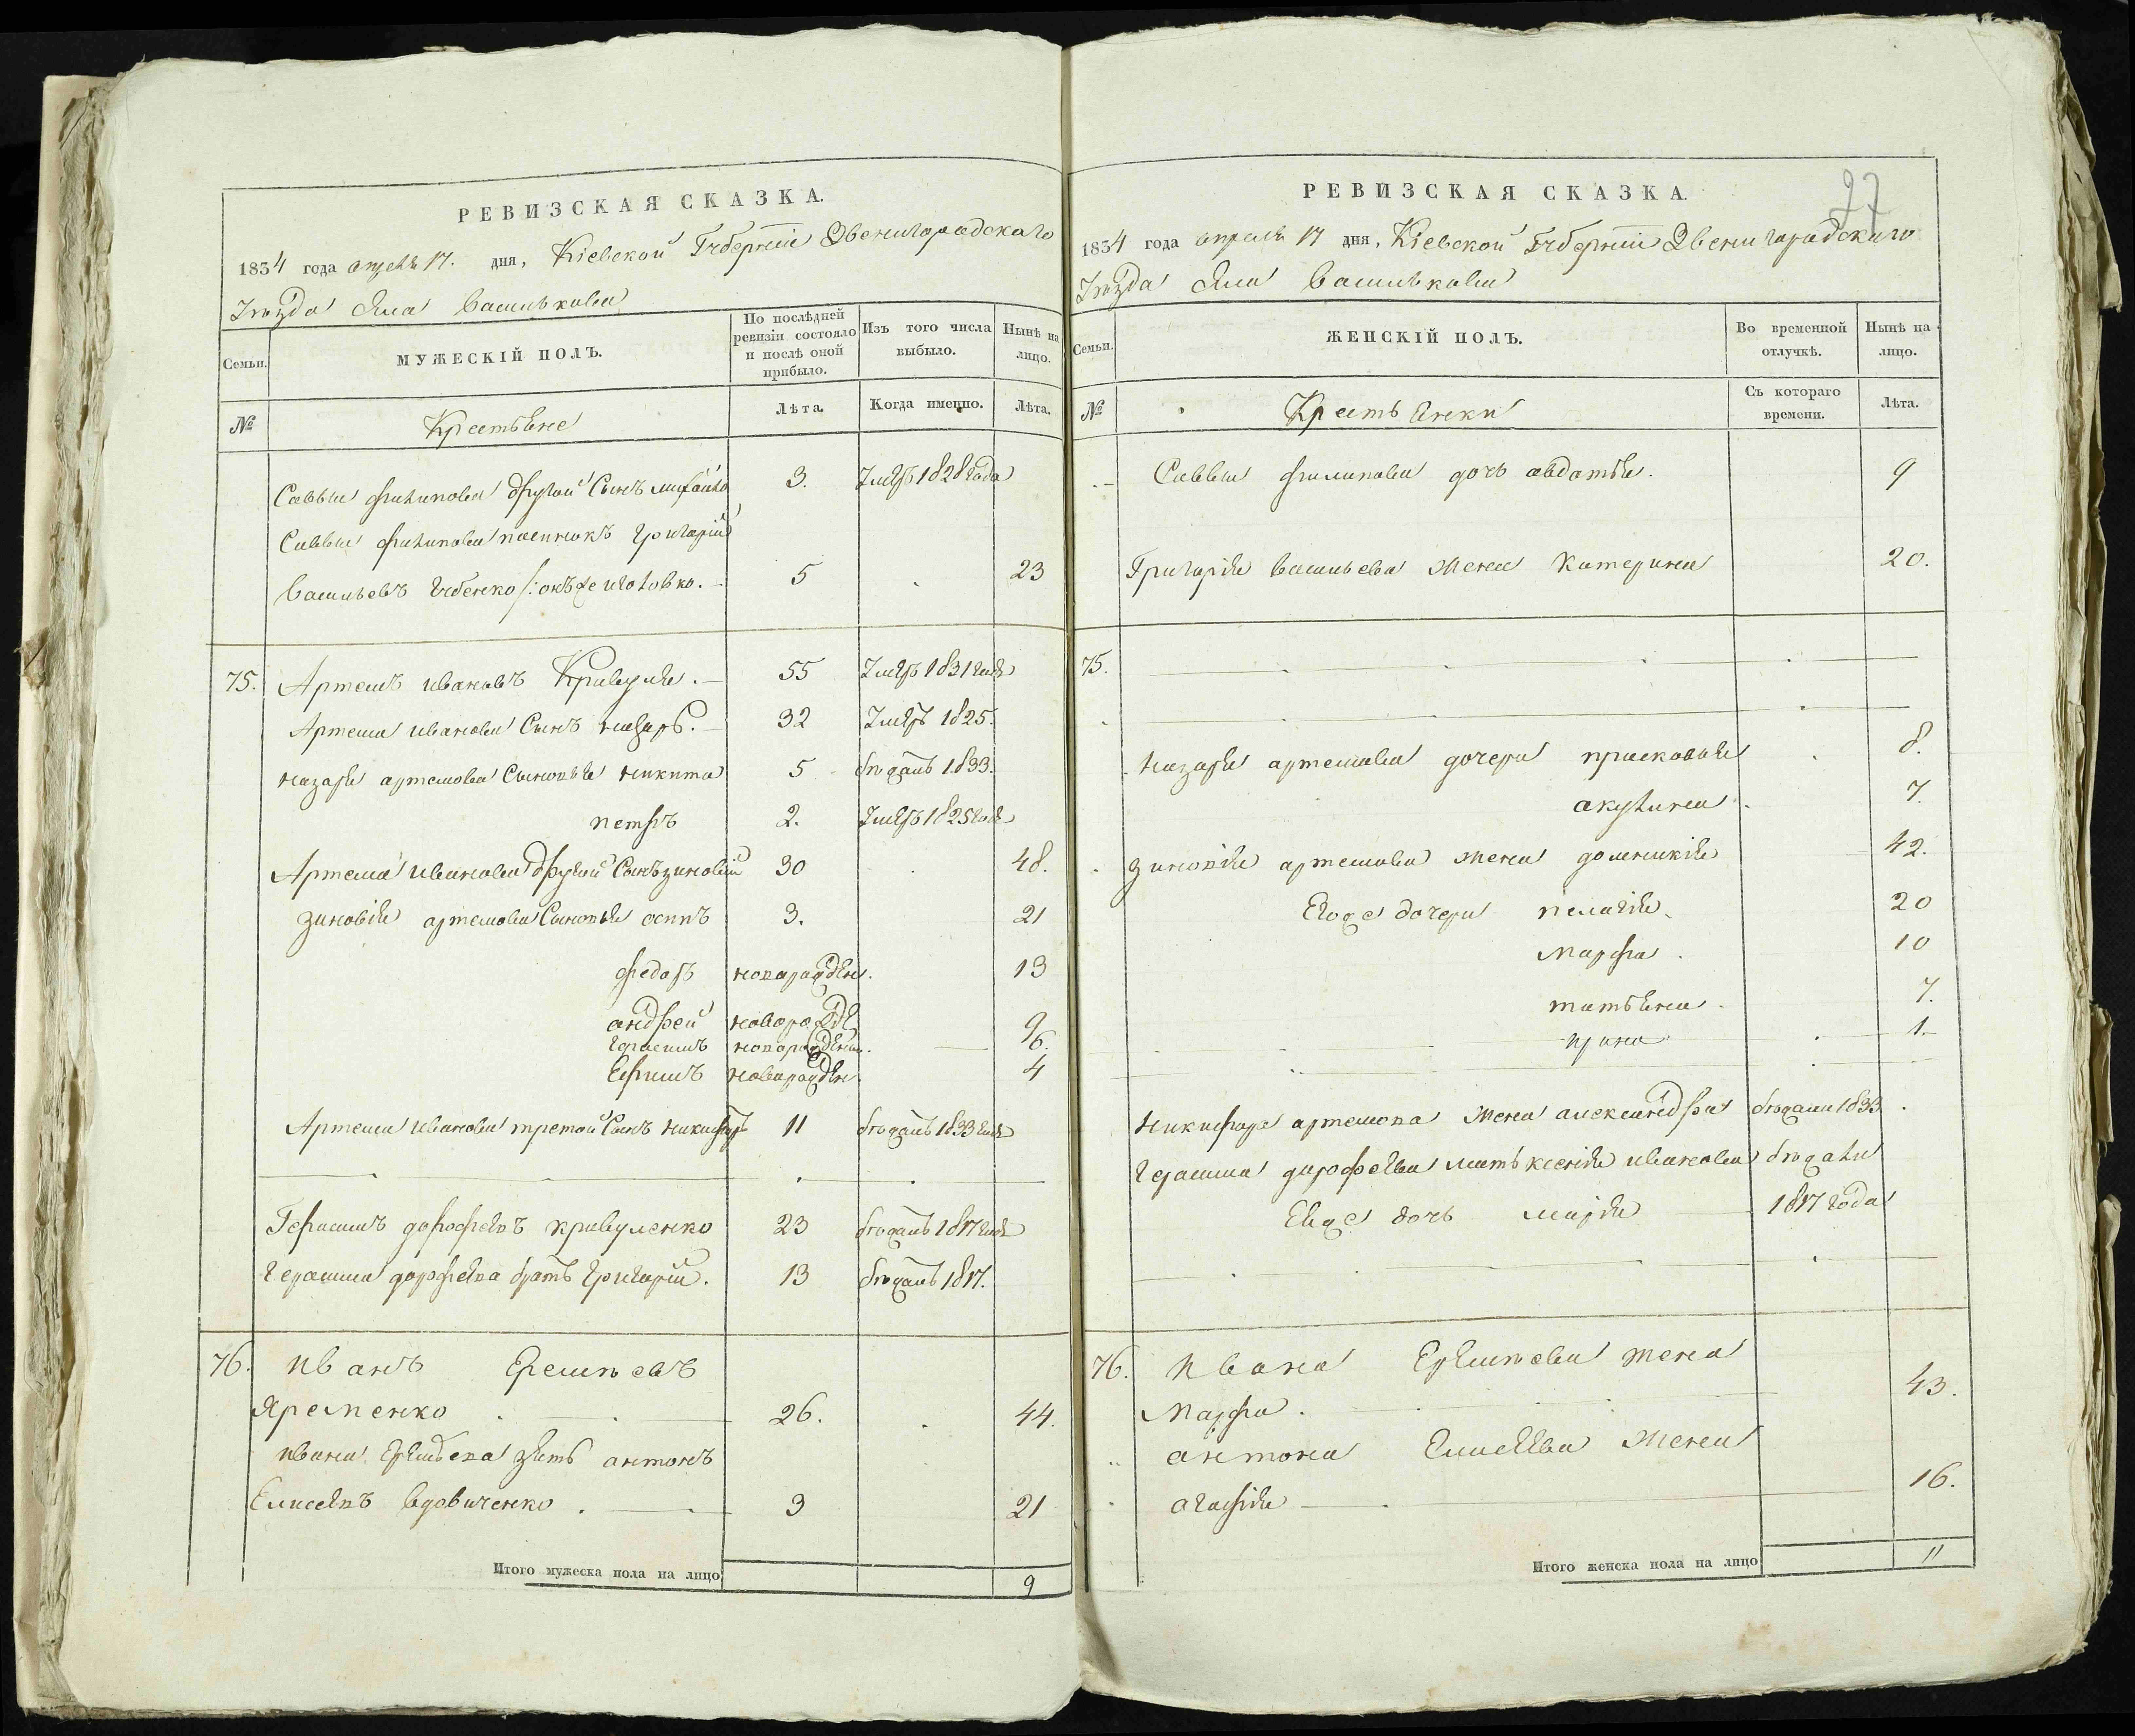 РЕВИЗСКАЯ СКАЗКА.
1834 года апреля 17. дня, Кіевской Губерніи Звенигородскаго
Уезда Села Василькова
Семьи. МУЖЕСКІЙ ПОЛЪ. По послѣдней ревизіи состояло и послѣ оной прибыло. Изъ того числа выбыло. Нынѣ на лицо.
№ Крестьяне Лѣта. Когда именно. Лѣта.
Саввы филипова другой Сынъ михайло 3. Умеръ 1828 года
Саввы филипова Григорій
Васильевъ Губенко 5 23
75. Артемъ ивановъ Кривуля. 55 Умеръ 1831 года
Артема иванова Сынъ назаръ. 32 Умеръ 1825.
назаря артемова Сыновья никита 5 бѣжалъ 1833.
петръ 2. Умеръ 1825 года
Артема иванова другой Сынъ зиновій 30 48.
зиновія артемова Сыновья осипъ 3. 21
федоръ новорожден. 13
андрей новорожде 9
герасимъ новорожден. 6.
Ефимъ новорожден. 4
Артема иванова третой Сынъ никифоръ 11 бѣжалъ 1833 года
Герасимъ дорофеевъ кривуленко 23 бѣжалъ 1817 года
герасима дорофеева братъ григорій. 13 бѣжалъ 1817.
76. иванъ Еремѣевъ
Яременко 26. 44.
ивана Еремѣева зять антонъ
Елисеевъ вдовиченко 3 21
Итого мужеска пола на лицо 9
27
РЕВИЗСКАЯ СКАЗКА.
1834 года апреля 17 дня, Кіевской Губерніи Звенигородскаго
Уезда Села Василькова
Семьи. ЖЕНСКІЙ ПОЛЪ. Во временной отлучкѣ. Нынѣ на лицо.
№ Крестьянки Съ котораго времени. Лѣта.
Саввы филипова дочь авдотья. 9
Григорія васильева жена Катерина 20.
75.
назаря артемова дочери прасковья 8.
акулина 7.
зиновія артемова жена домникія 42.
Егоже дочери пелагія. 20
марфа. 10
татьяна. 7.
ирина 1.
никифора артемова жена александра бѣжали 1833.
герасима дорофеева мать ксенія иванова бѣжали
Еяже дочь марія 1817 года
76. ивана Еремѣева жена
марфа. 43.
антона Елисеева жена
агафія 16.
Итого женска пола на лицо 11